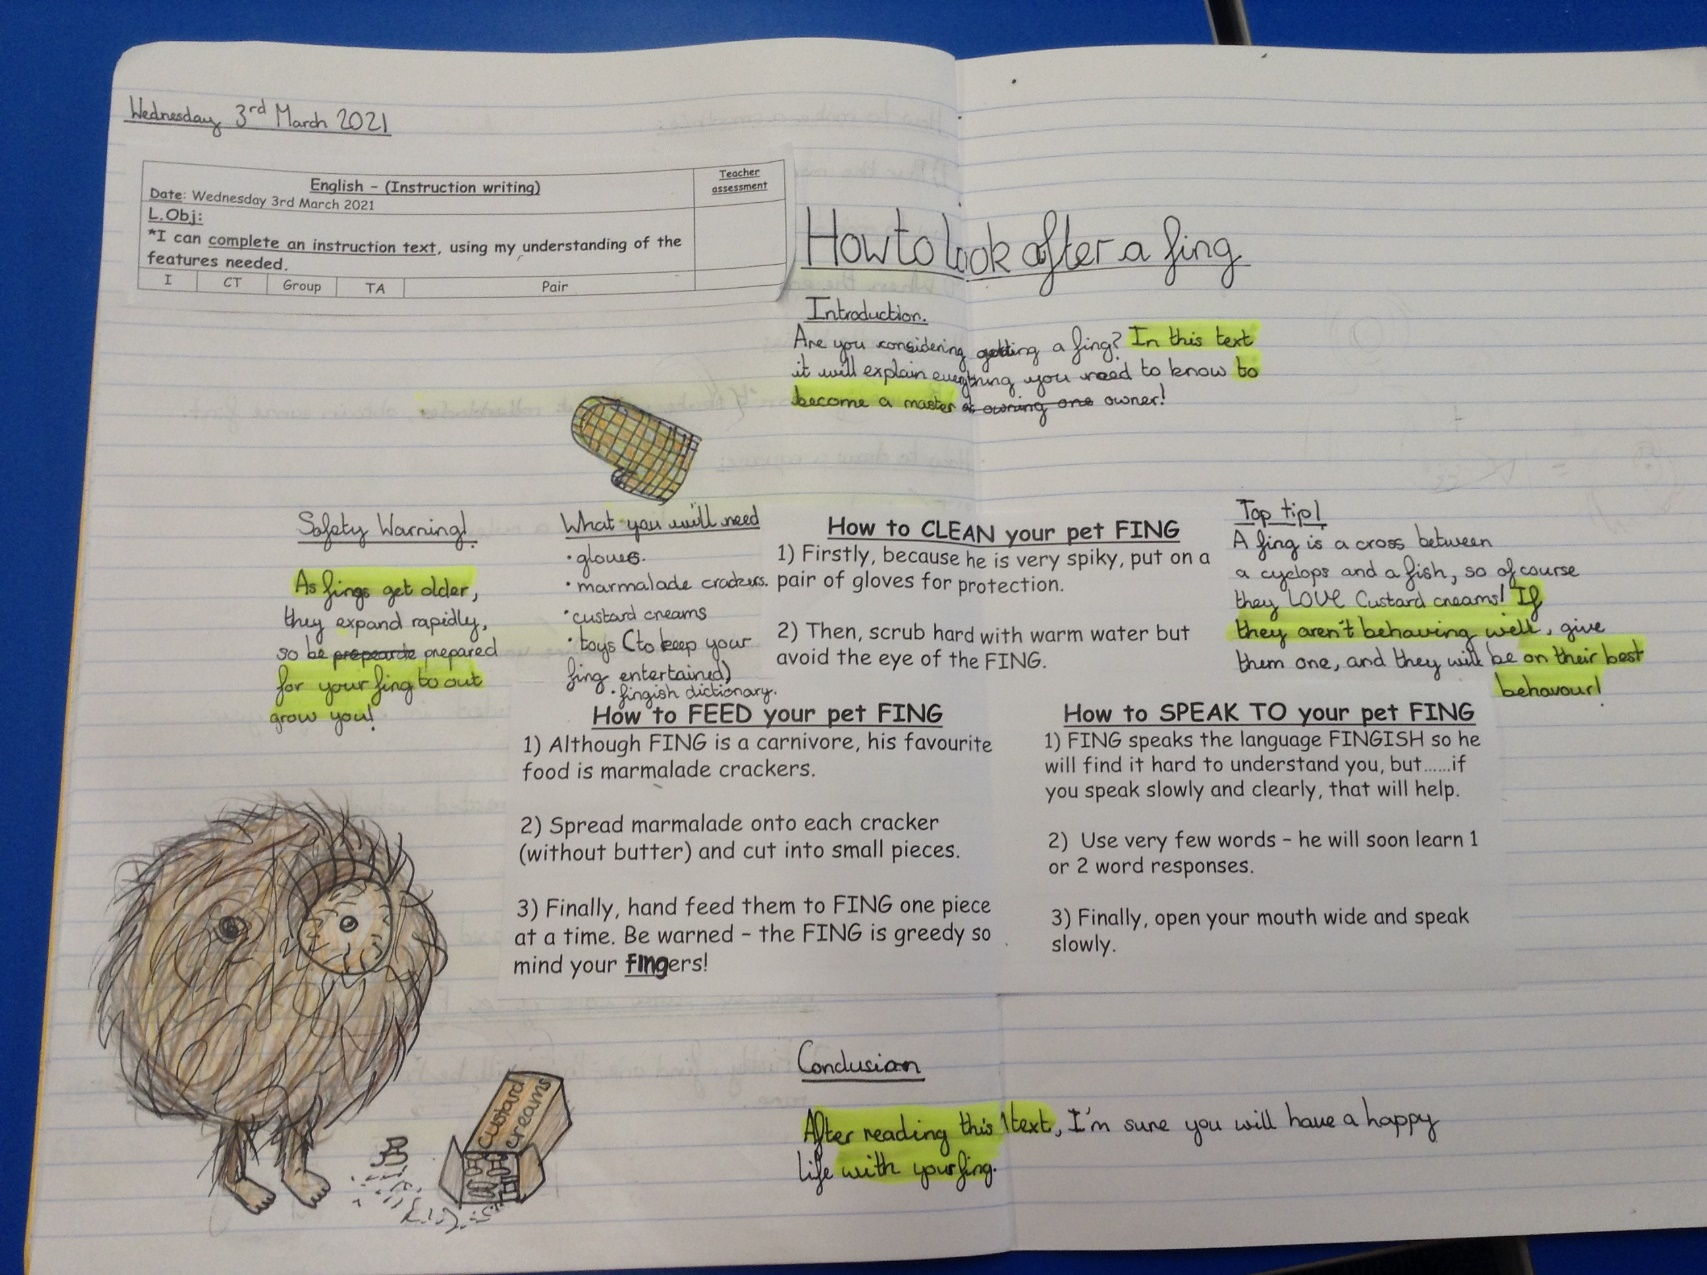 Wednesday 3rd March 2021
English – (Instruction writing)
Teacher
assessment
Date: Wednesday 3rd March 2021
L.Obj:
*I can complete an instruction text, using my understanding of the
features needed.
I CT Group TA Pair
How to look after a fing
Introduction.
Are you considering getting a fing? In this text
it will explain everything you need to know to
become a master at owning one owner!
Safety Warning!
As fings get older,
they expand rapidly,
so be prepearde prepared
for your fing to out
grow you!
What you will need
• gloves.
• marmalade crackers.
• custard creams
• toys (to keep your
fing entertained)
• fingish dictionary.
How to CLEAN your pet FING
1) Firstly, because he is very spiky, put on a
pair of gloves for protection.
2) Then, scrub hard with warm water but
avoid the eye of the FING.
Top tip!
A fing is a cross between
a cyclops and a fish, so of course
they LOVE Custard creams! If
they aren't behaving well, give
them one, and they will be on their best
behavour!
How to FEED your pet FING
1) Although FING is a carnivore, his favourite
food is marmalade crackers.
2) Spread marmalade onto each cracker
(without butter) and cut into small pieces.
3) Finally, hand feed them to FING one piece
at a time. Be warned – the FING is greedy so
mind your fingers!
How to SPEAK TO your pet FING
1) FING speaks the language FINGISH so he
will find it hard to understand you, but......if
you speak slowly and clearly, that will help.
2) Use very few words – he will soon learn 1
or 2 word responses.
3) Finally, open your mouth wide and speak
slowly.
Custard
creams
Conclusion
After reading this text, I'm sure you will have a happy
life with your fing.